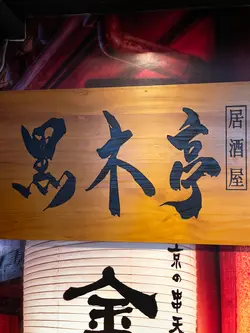 黒木亭
居酒屋
京の串天
金